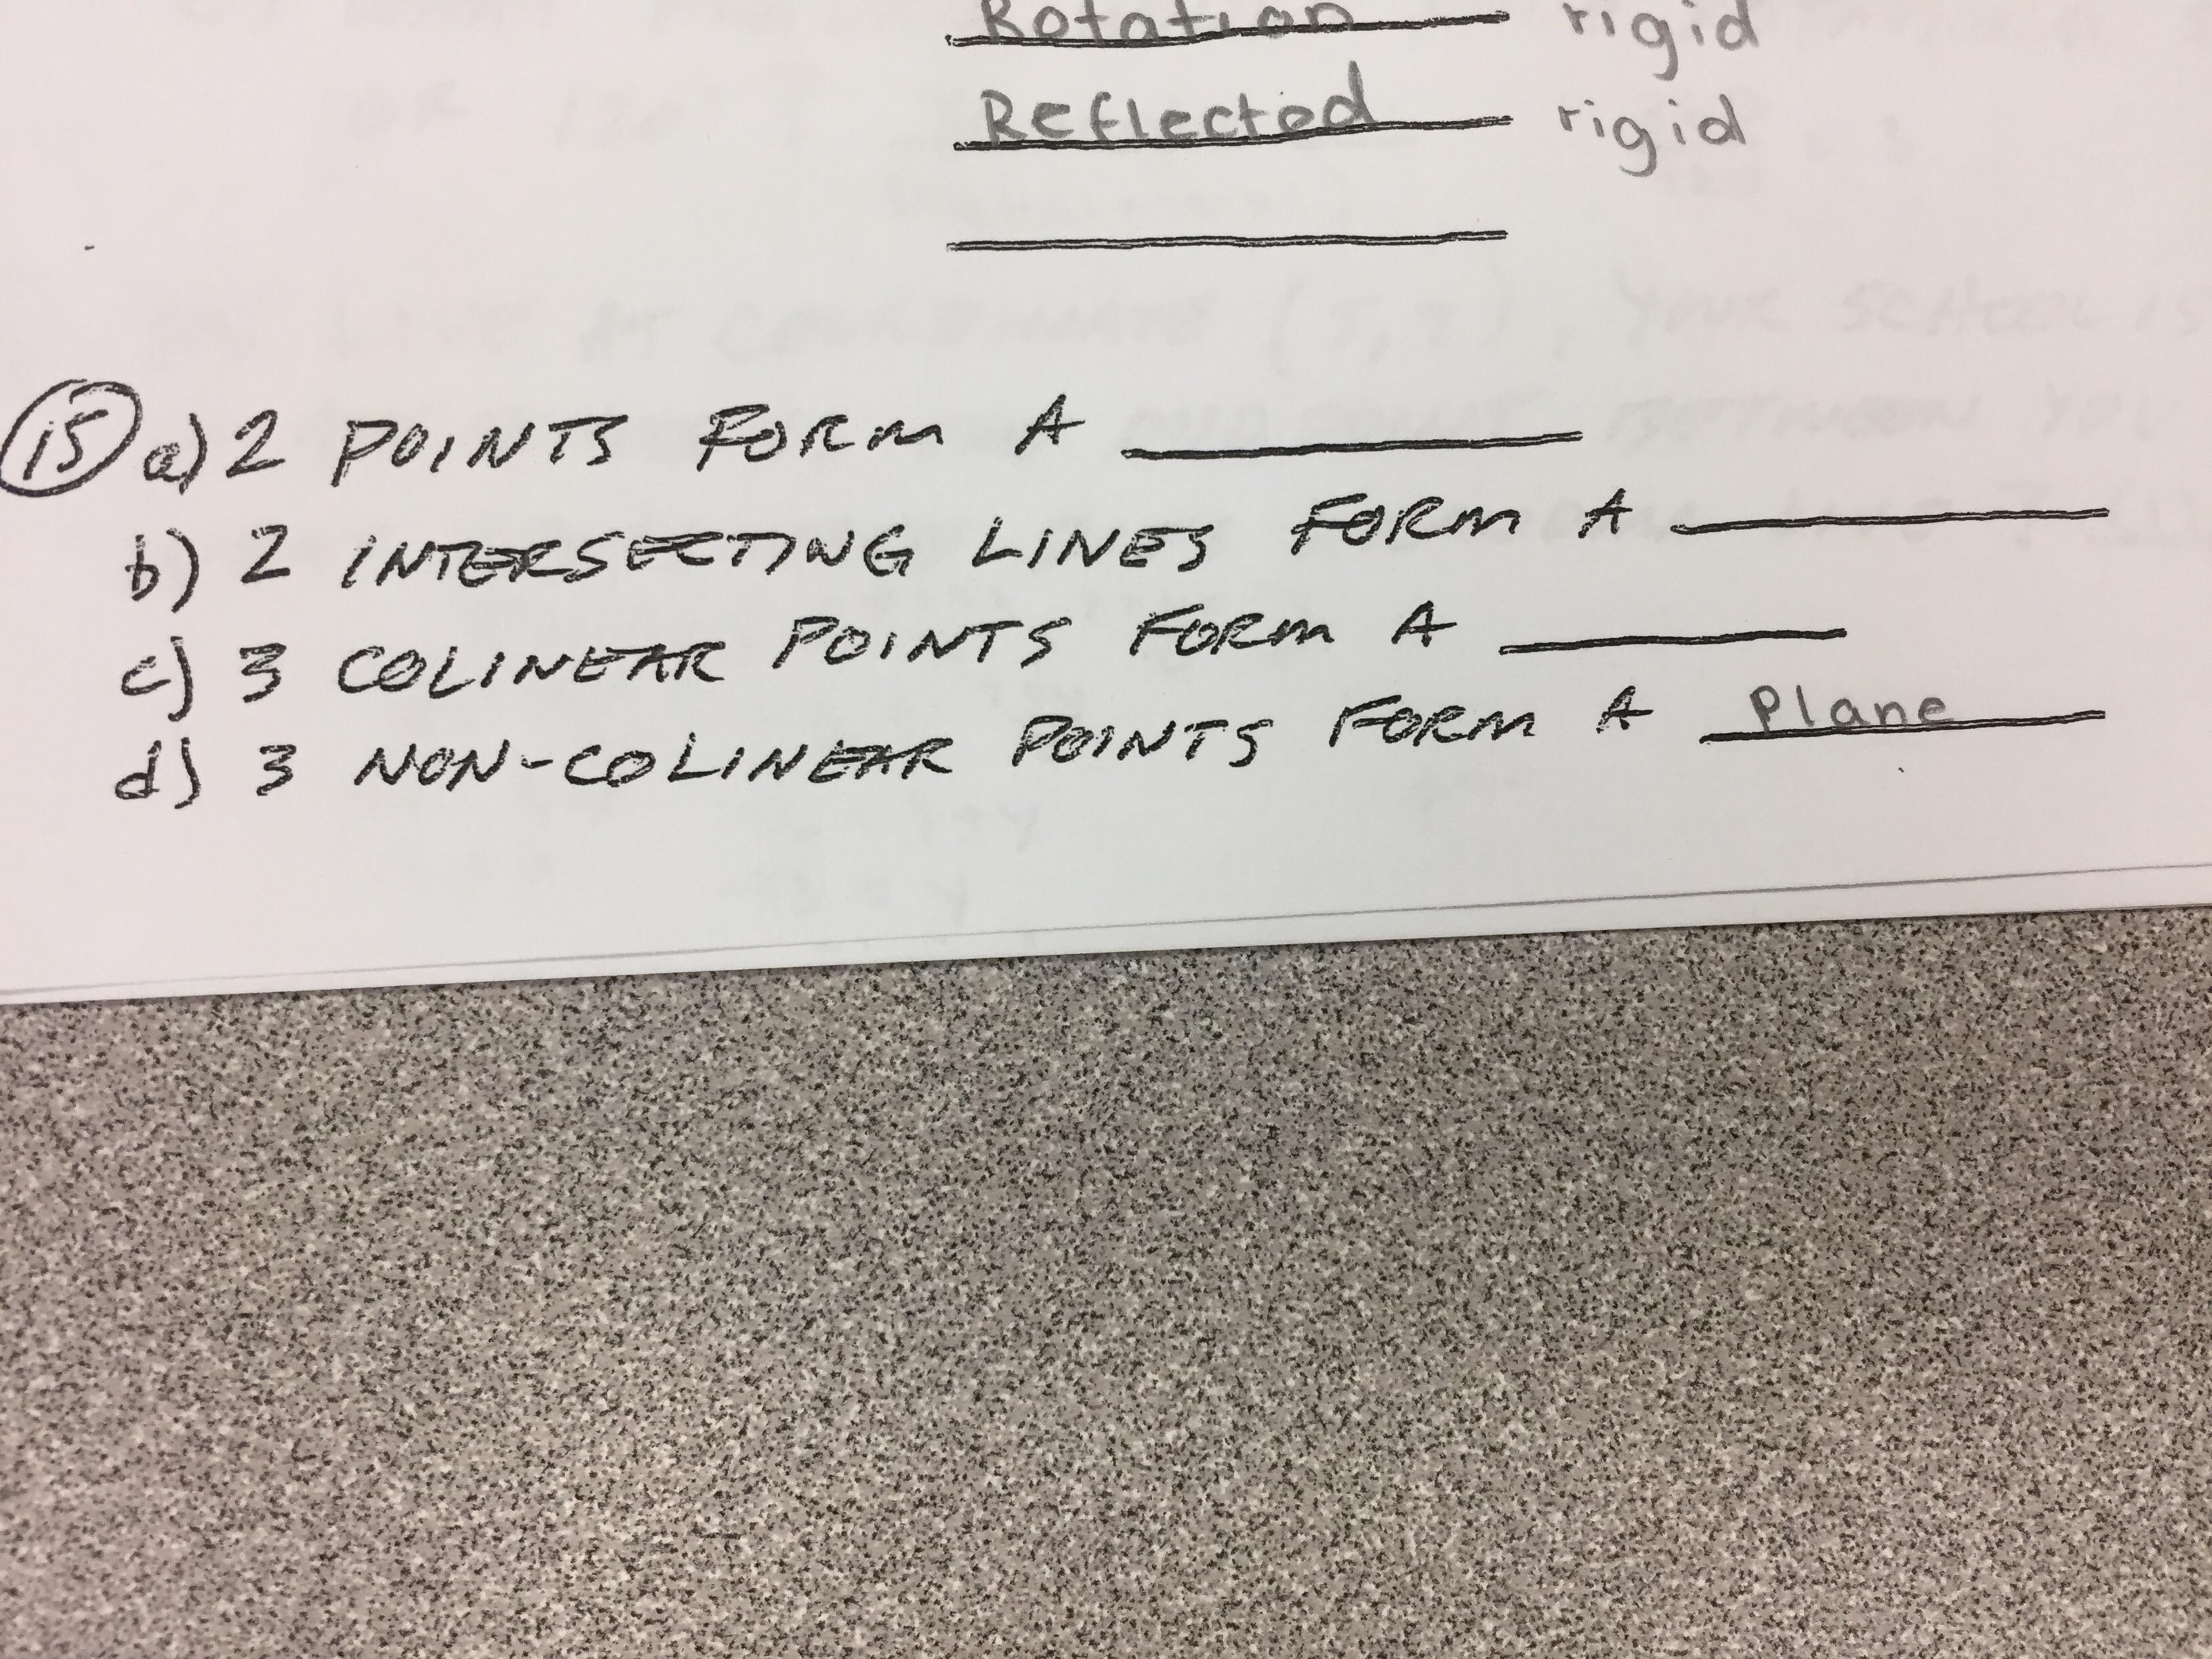 Rotation rigid
Reflected rigid
15 a) 2 POINTS FORM A
b) 2 INTERSECTING LINES FORM A
c) 3 COLINEAR POINTS FORM A
d) 3 NON-COLINEAR POINTS FORM A Plane